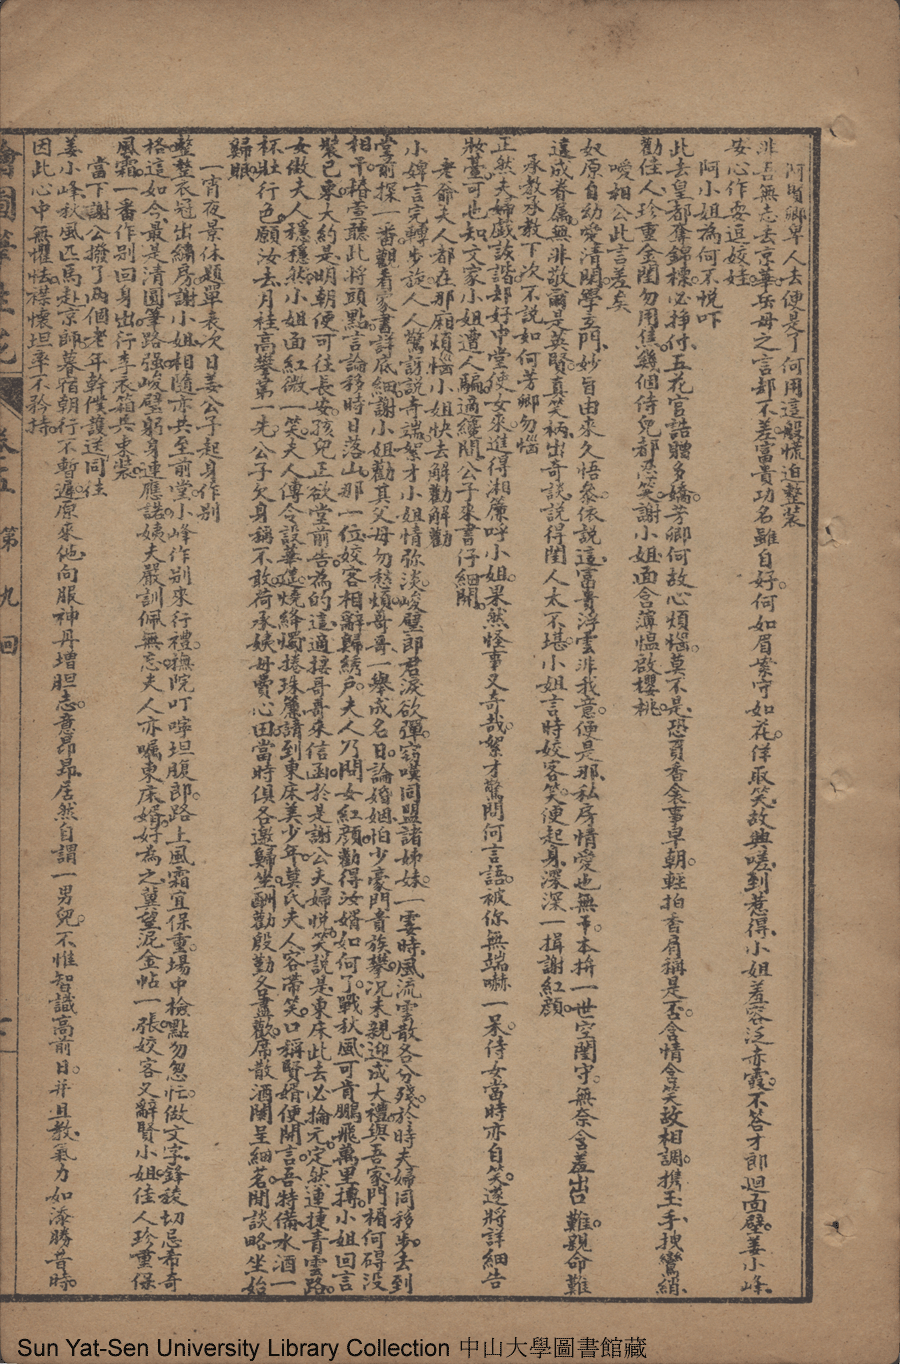 阿賢卿卑人去便是了何用這般慌迫整裝
非吾無志去京華岳母之言却不差富貴功名雖自好何如眉案守如花佯取笑故典嗟到惹得小姐羞容泛赤霞不答才郎迴面壁姜小峰
安心作耍逗姣娃
阿小姐為何不悅吓
此去皇都奪錦標必掙付五花官誥贈多嬌芳卿何故心煩惱莫不是恐貢香衾事早朝輕拍香肩稱是否含情含笑故相調攜玉手拽鸞綃
勸佳人珍重金閨勿用焦幾個侍兒都忍笑謝小姐面含薄愠啟櫻桃
噯相公此言差矣
奴原自幼愛清閒學立門妙旨由來久悟叅依說這富貴浮雲非我意便是那私房情愛也無干本拚一世空閨守無奈含羞出口難親命難
違成眷屬無非敬爾是英賢真笑柄出奇談說得閨人太不堪小姐言時姣客笑便起身深深一揖謝紅顏
承教承教下次不說如何芳卿勿惱
正然夫婦戲詼諧却好中堂使女來進得湘簾呼小姐果然怪事又奇哉絮才驚問何言語被你無端嚇一呆侍女當時亦自笑遂將詳細告
妝臺可也知文家小姐遭人騙適纔間公子來書仔細開
老爺夫人都在那廂煩惱小姐快去解勸解勸
小婢言完轉步旋人人驚訝說奇端絮才小姐情弥淡峻壁郎君淚欲彈窃嘆同盟諸姊妹一霎時風流雲散各分殘於時夫婦同移步去到
堂前探一番觀看家書詳底細謝小姐勸其父母勿愁煩哥哥一舉成名日論婚姻怕少豪門貴族攀况未親迎成大禮與吾家門楣何碍没
相干椿萱聽此將頭點言論移時日落山那一位姣客相辭歸綉戶夫人乃問女紅顏勸得汝婿如何了戰秋風可肯鵬飛萬里摶小姐回言
裝已束大約是明朝便可往長安孩兒正欲堂前告為的這適接哥哥來信函於是謝公夫婦悅笑說是東床此去必掄元定然連捷青雲路
女做夫人穩穩然小姐面紅微一笑夫人傳令設華筵燒絳燭捲珠簾請到東床美少年莫氏夫人容帶笑口稱賢婿便開言吾特備水酒一
杯壯行色願汝去月桂高攀第一先公子欠身稱不敢荷承姨母費心田當時俱各邀歸坐酬勸殷勤各盡歡席散酒闌呈細茗閒談略坐始
歸眠
一宵夜景休題單表次日姜公子起身作别
整整衣冠出綉房謝小姐相隨亦共至前堂小峰作别來行禮撫院叮嚀坦腹郎路上風霜宜保重場中檢點勿忽忙做文字鋒稜切忌希奇
格這如今最是清圓筆路强峻壁躬身連應諾姨夫嚴訓佩無忘夫人亦囑東床婿好為之冀望泥金帖一張姣客又辭賢小姐佳人珍重保
風霜一番作别回身出行李衣箱共束裝
當下謝公撥了兩個老年幹僕護送同往
姜小峰秋風匹馬赴京師暮宿朝行不暫遲原來他向服神丹增胆志意昂昂居然自謂一男兒不惟智識高前日并且教氣力如添勝昔時
因此心中無懼怯襟懷坦率不矜持
繪圖筆生花 卷五 第九回
Sun Yat-Sen University Library Collection 中山大學圖書館藏